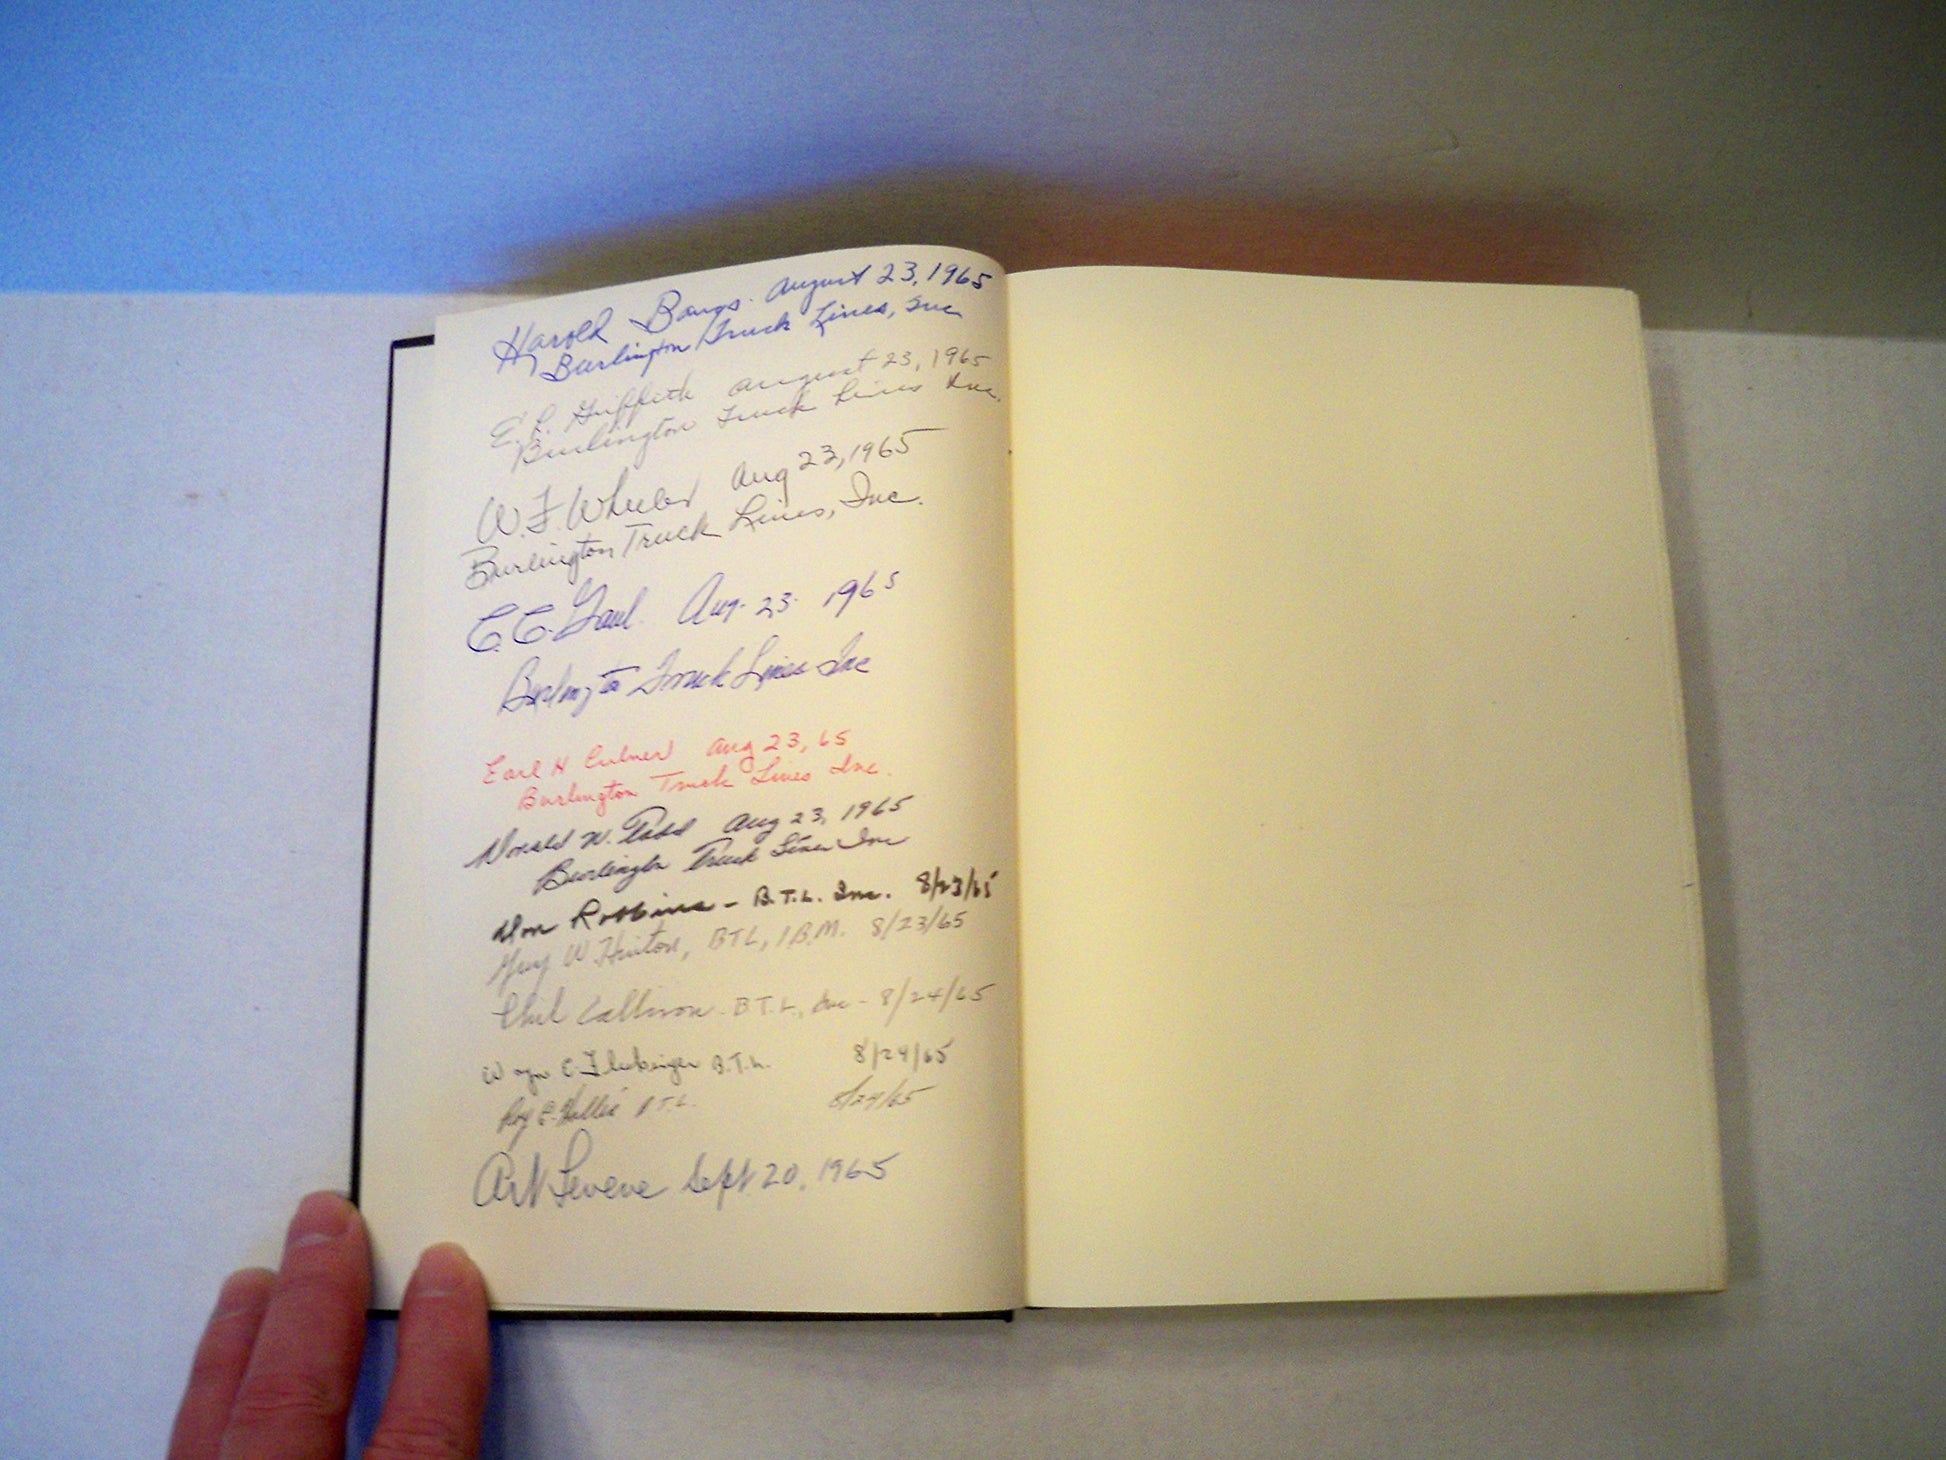 Harold Bangs. August 23, 1965
Burlington Truck Lines, Inc
E. L. Griffith August 23, 1965
Burlington Truck Lines Inc.
W. F. Wheeler Aug 23, 1965
Burlington Truck Lines, Inc.
C. C. Gaul. Aug. 23. 1965
Burlington Truck Lines Inc
Earl H Aug 23, 65
Burlington Truck Lines Inc.
Donald W. Todd Aug 23, 1965
Burlington Truck Lines Inc
Don Robbins - B.T.L. Inc. 8/23/65
Guy W. Hinton, BTL, I.B.M. 8/23/65
Phil Callison - B.T.L., Inc - 8/24/65
C. B.T.L. 8/24/65
Roy E. Hollis B.T.L. 8/24/65
Art Levene Sept. 20, 1965